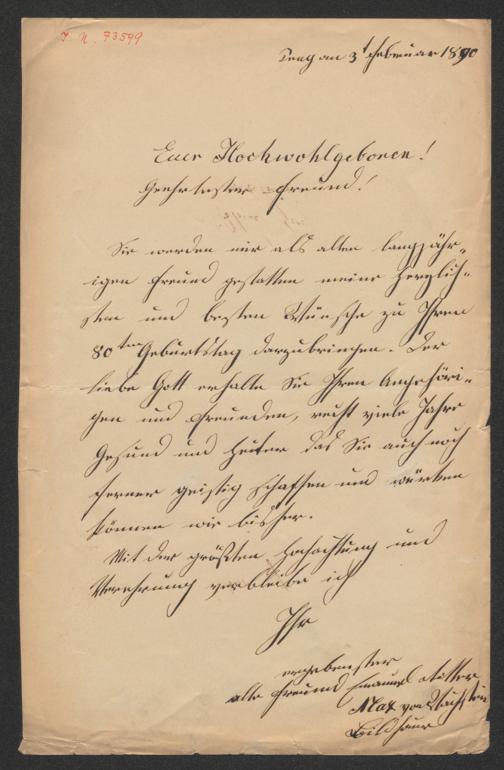 I. N. 73599
Prag am 3t Februar 1890
Euer Hochwohlgeboren!
Geehrtester Freund!
Sie werden mir als alten langjähr-
igen Freund gestatten meine herzlich-
sten und besten Wünsche zu Ihren
80ten Geburtstag darzubringen. Der
liebe Gott erhalte Sie Ihren Angehöri-
gen und Freunden, recht viele Jahre
Gesund und heiter das Sie auch noch
ferner geistig schaffen und würken
können wie bisher.
Mit der größten Hochachtung und
Verehrung verbleibe ich
Ihr
ergebenster
alte Freund Emanuel Ritter
Max von Wachstein
Bildhauer